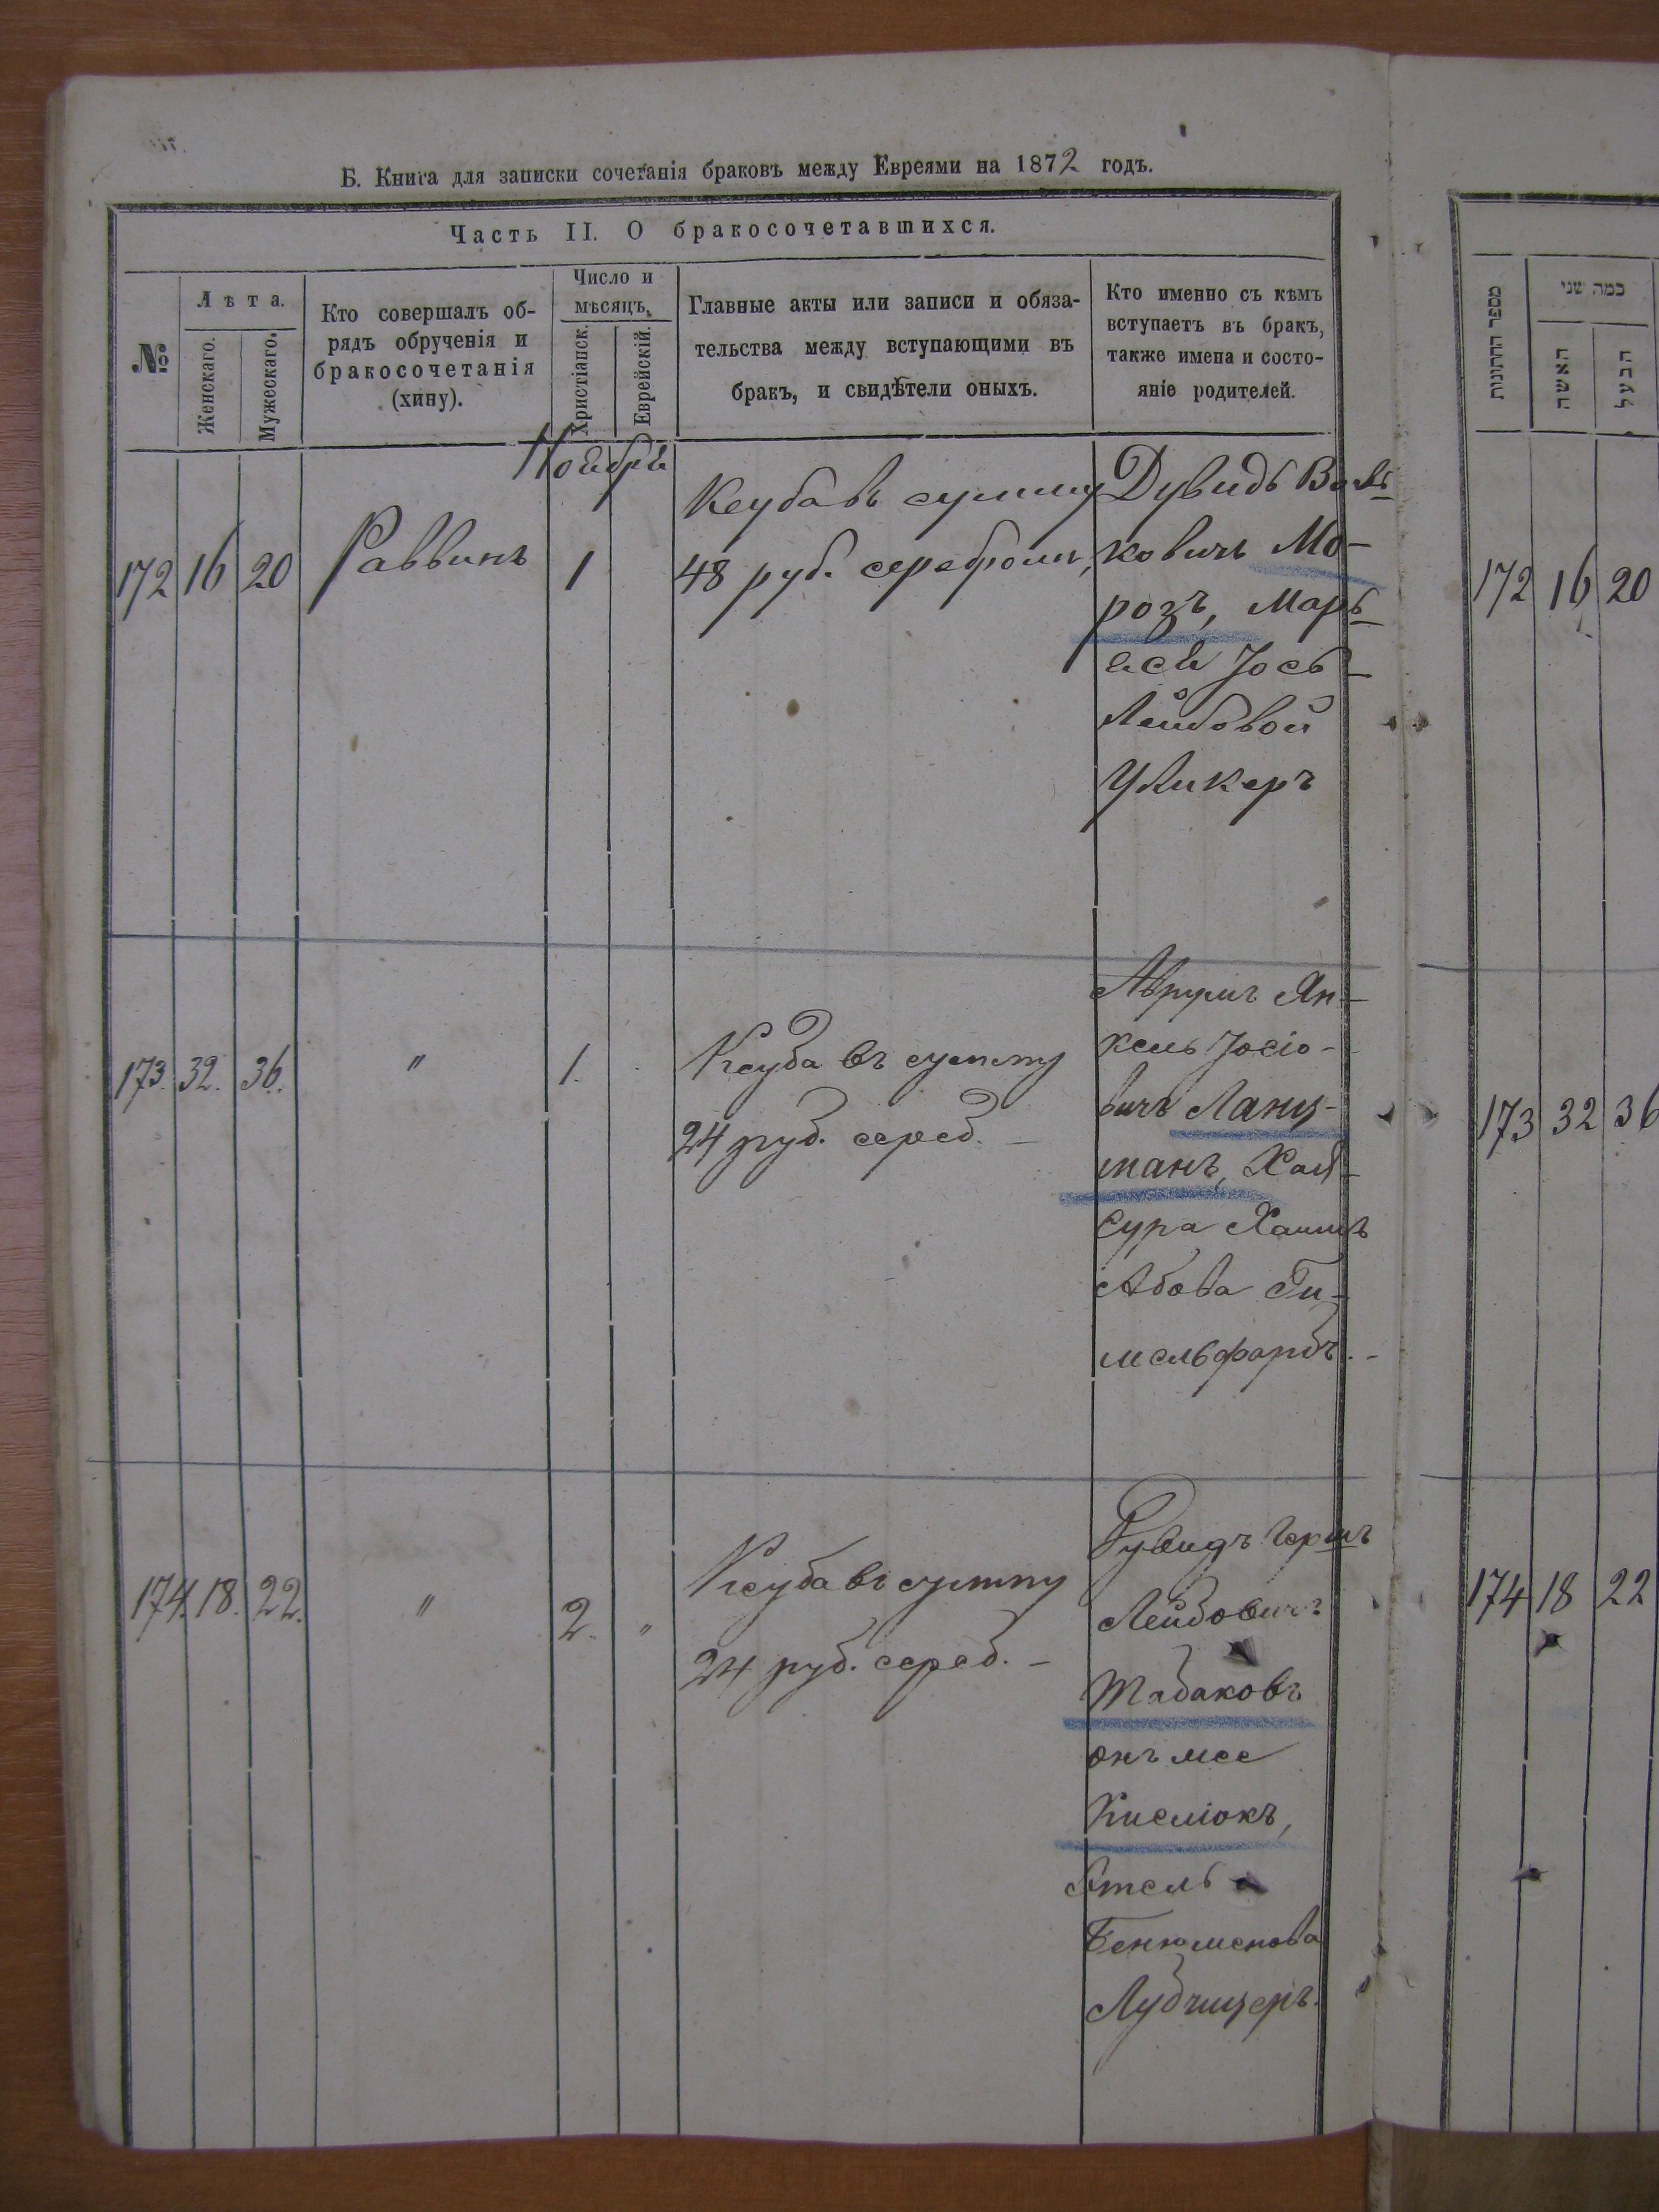 Б. Книга для записки сочетанія браковъ между Евреями на 1872 годъ.
Часть II. О бракосочетавшихся.
№
Лѣта.
Женскаго.
Мужескаго.
Кто совершалъ об-
рядъ обрученія и
бракосочетанія
(хину).
Число и
мѣсяцъ.
Христіанск.
Еврейскій.
Главные акты или записи и обяза-
тельства между вступающими въ
бракъ, и свидѣтели оныхъ.
Кто именно съ кѣмъ
вступаетъ въ бракъ,
также имена и состо-
яніе родителей.
Ноября
172 16 20 Раввинъ 1
Ксуба въ сумму
48 руб. серебромъ,
Дувидъ Воль
ковичъ Мо-
розъ, Марь
яся Іось
Лейбовой
Уликеръ
173. 32. 36. " 1.
Ксуба въ сумму
24 руб. сереб. –
Аврумъ Ян-
кель Іосіо-
вичъ Ланц-
манъ, Хая-
Сура Хаимъ
Абова Ги-
мельфарбъ. -
174. 18. 22. " 2. "
Ксуба въ сумму
24 руб. сереб. –
Дувидъ Гершъ
Лейбовичъ
Табаковъ
онъ же
Кисліокъ,
Этель
Бенюменова
Лубчицеръ.
מספר החתונות
כמה שני
האשה
הבעל
172 16 20
173 32 36
174 18 22